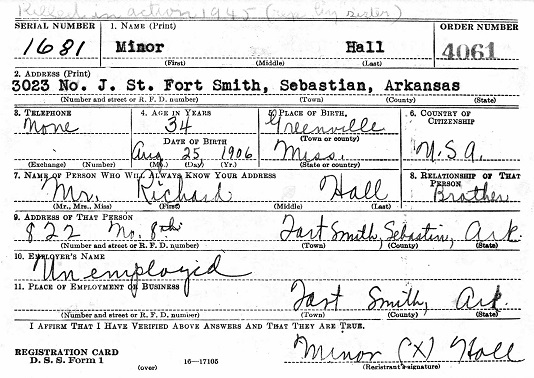 Killed in action 1945 (rep. by sister)
SERIAL NUMBER 1. NAME (Print) ORDER NUMBER
1681 Minor Hall 4061
(First) (Middle) (Last)
2. ADDRESS (Print)
3023 No. J. St. Fort Smith, Sebastian, Arkansas
(Number and street or R. F. D. number) (Town) (County) (State)
3. TELEPHONE 4. AGE IN YEARS 5. PLACE OF BIRTH 6. COUNTRY OF CITIZENSHIP
None 34 Greenville
(Town or county)
DATE OF BIRTH
Aug 25, 1906 Miss. U.S.A.
(Exchange) (Number) (Mo.) (Day) (Yr.) (State or country)
7. NAME OF PERSON WHO WILL ALWAYS KNOW YOUR ADDRESS 8. RELATIONSHIP OF THAT PERSON
Mr. Richard Hall Brother
(Mr., Mrs., Miss) (First) (Middle) (Last)
9. ADDRESS OF THAT PERSON
822 No. 8th Fort Smith, Sebastin, Ark.
(Number and street or R. F. D. number) (Town) (County) (State)
10. EMPLOYER'S NAME
Unemployed
11. PLACE OF EMPLOYMENT OR BUSINESS
Fort Smith, Ark.
(Number and street or R. F. D. number) (Town) (County) (State)
I AFFIRM THAT I HAVE VERIFIED ABOVE ANSWERS AND THAT THEY ARE TRUE.
REGISTRATION CARD
D. S. S. Form 1 16—17105 Minor (X) Hall
(over) (Registrant's signature)